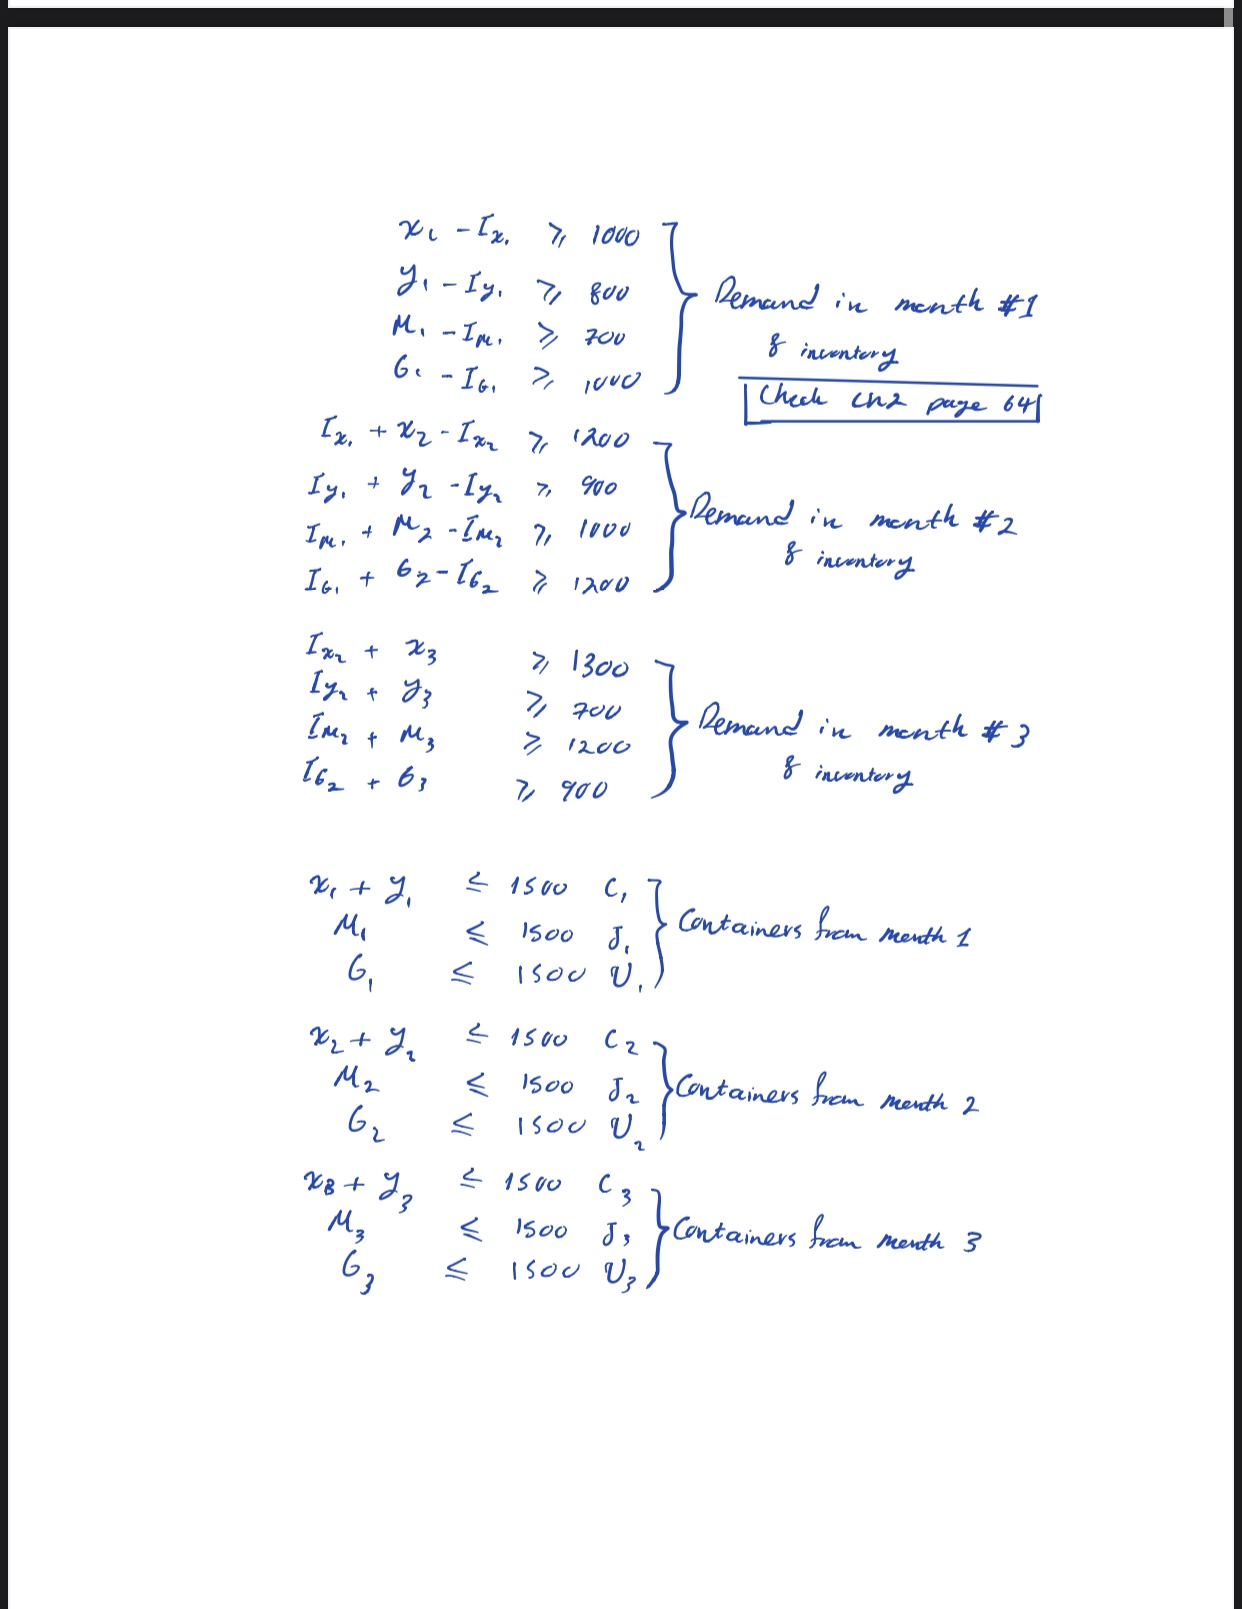 x₁ - Ix₁ ≥ 1000
y₁ - Iy₁ ≥ 800
M₁ - IM₁ ≥ 700
G₁ - IG₁ ≥ 1000
Demand in month #1
& inventory
Check Ch2 page 64
Ix₁ + x₂ - Ix₂ ≥ 1200
Iy₁ + y₂ - Iy₂ ≥ 900
IM₁ + M₂ - IM₂ ≥ 1000
IG₁ + G₂ - IG₂ ≥ 1200
Demand in month #2
& inventory
Ix₂ + x₃ ≥ 1300
Iy₂ + y₃ ≥ 700
IM₂ + M₃ ≥ 1200
IG₂ + G₃ ≥ 900
Demand in month #3
& inventory
x₁ + y₁ ≤ 1500 C₁
M₁ ≤ 1500 J₁
G₁ ≤ 1500 U₁
Containers from month 1
x₂ + y₂ ≤ 1500 C₂
M₂ ≤ 1500 J₂
G₂ ≤ 1500 U₂
Containers from month 2
x₃ + y₃ ≤ 1500 C₃
M₃ ≤ 1500 J₃
G₃ ≤ 1500 U₃
Containers from month 3